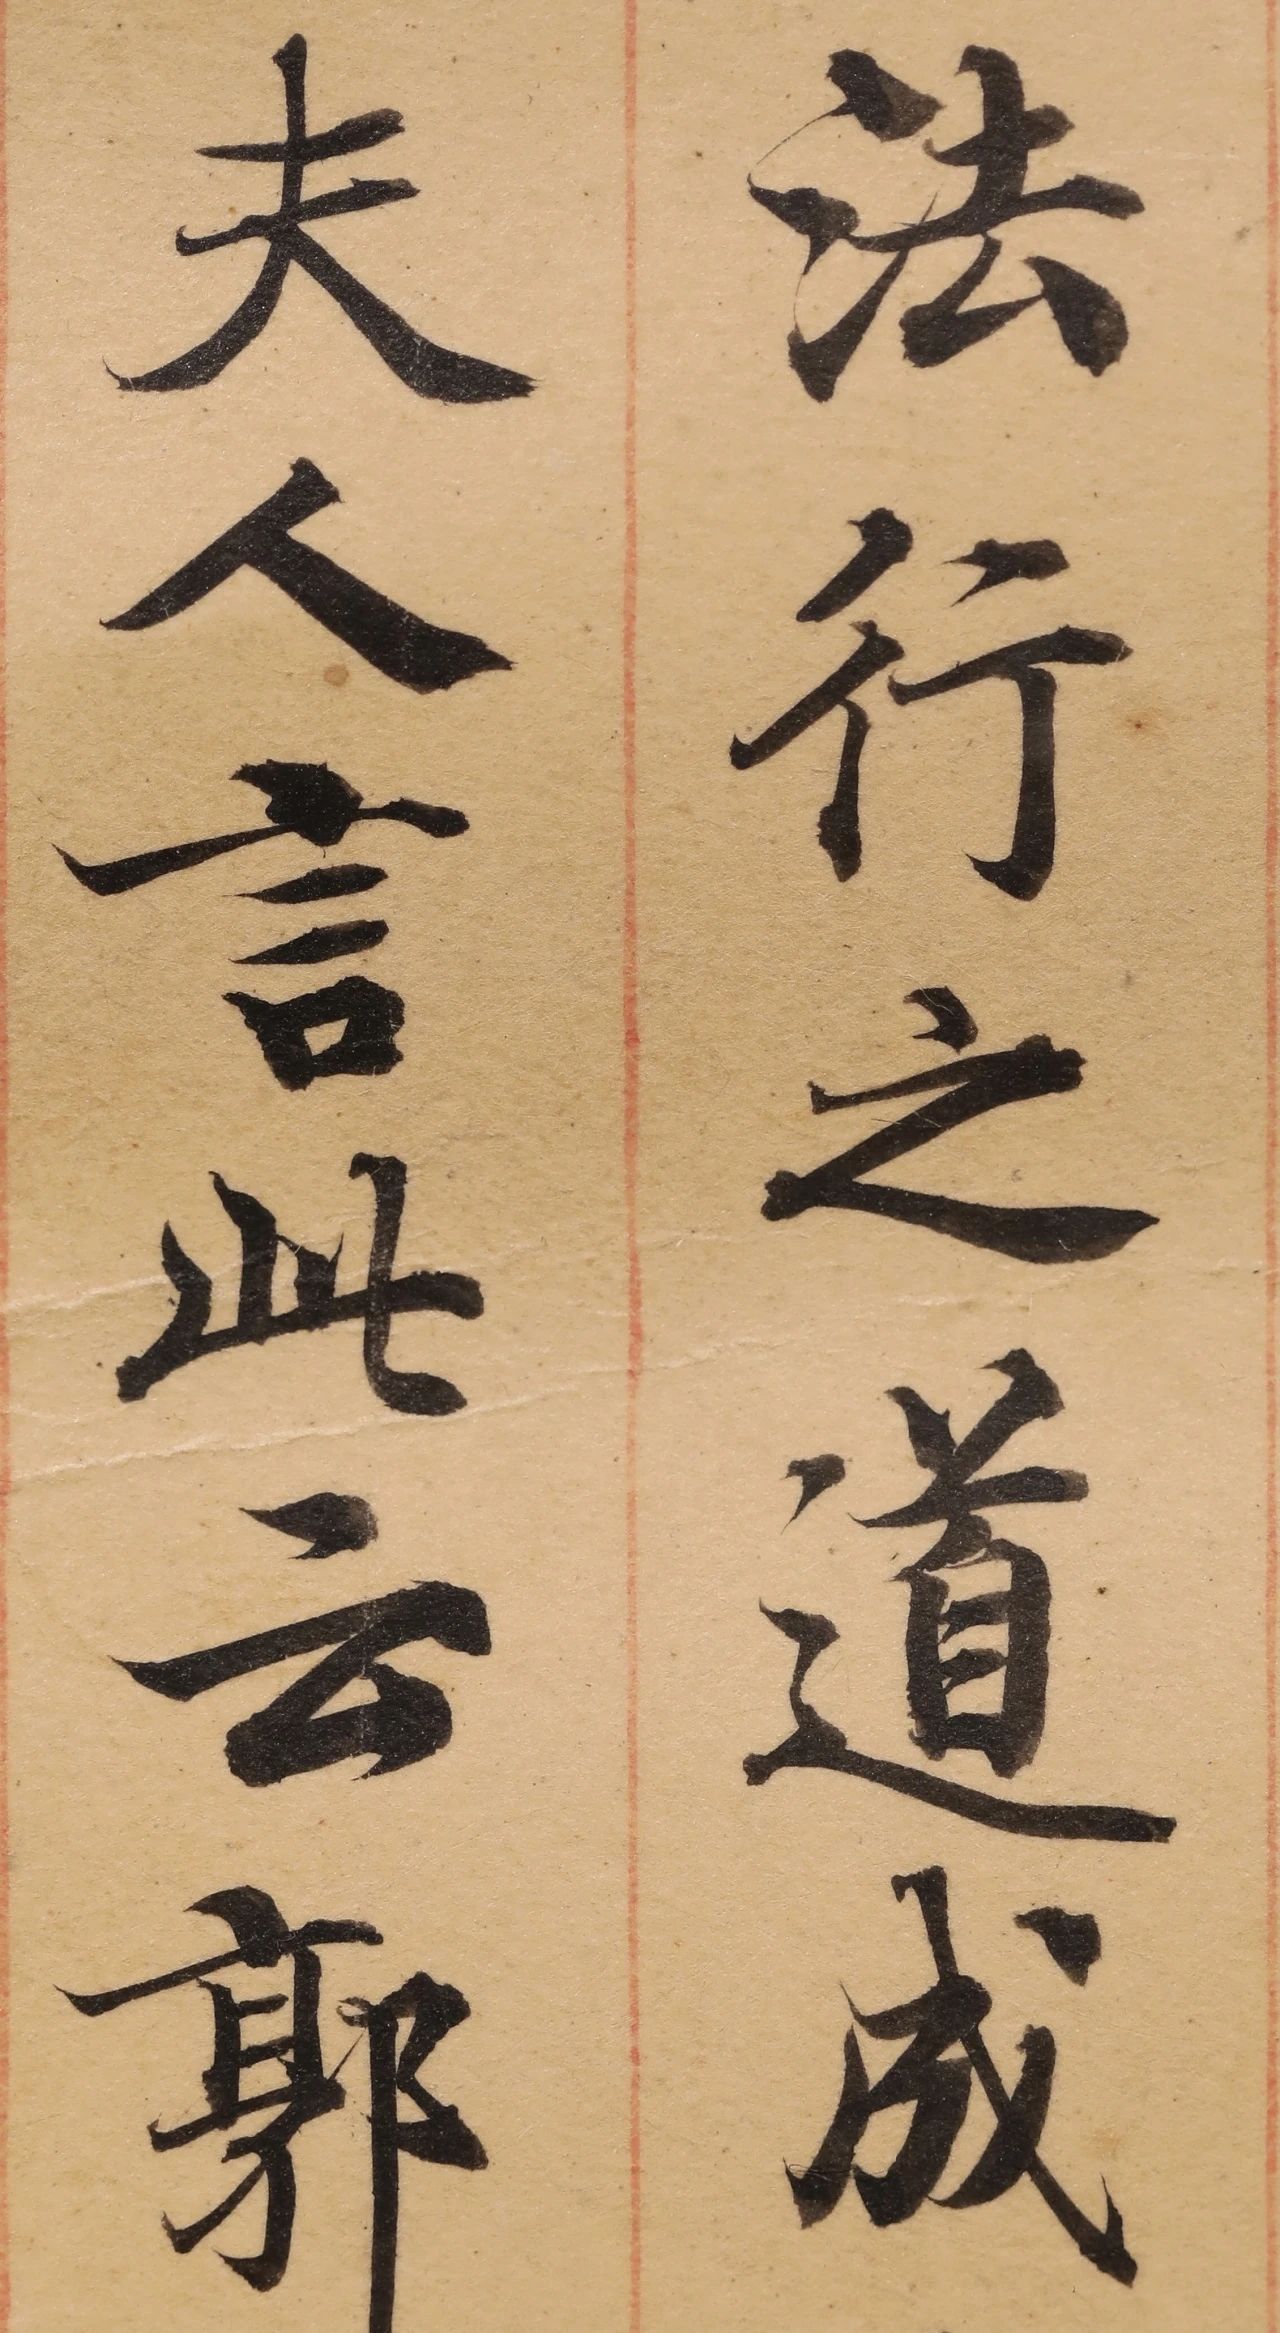 法行之道成
夫人言此云郭